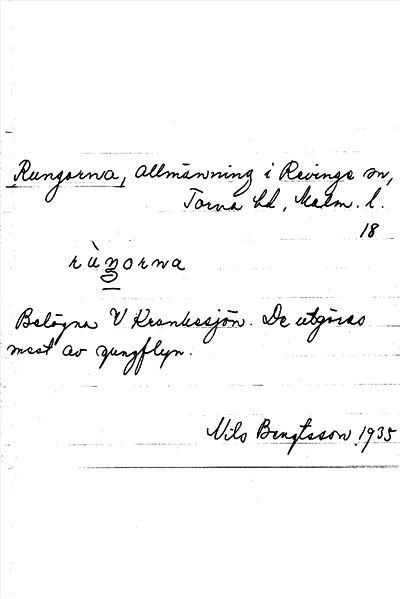 Rungorna, Allmänning i Revinge sn,
Torna hd, Malm. l.
18
rùŋorna
Belägna V Krankesjön. De utgöras
mest av gungflyn.
Nils Bengtsson 1935